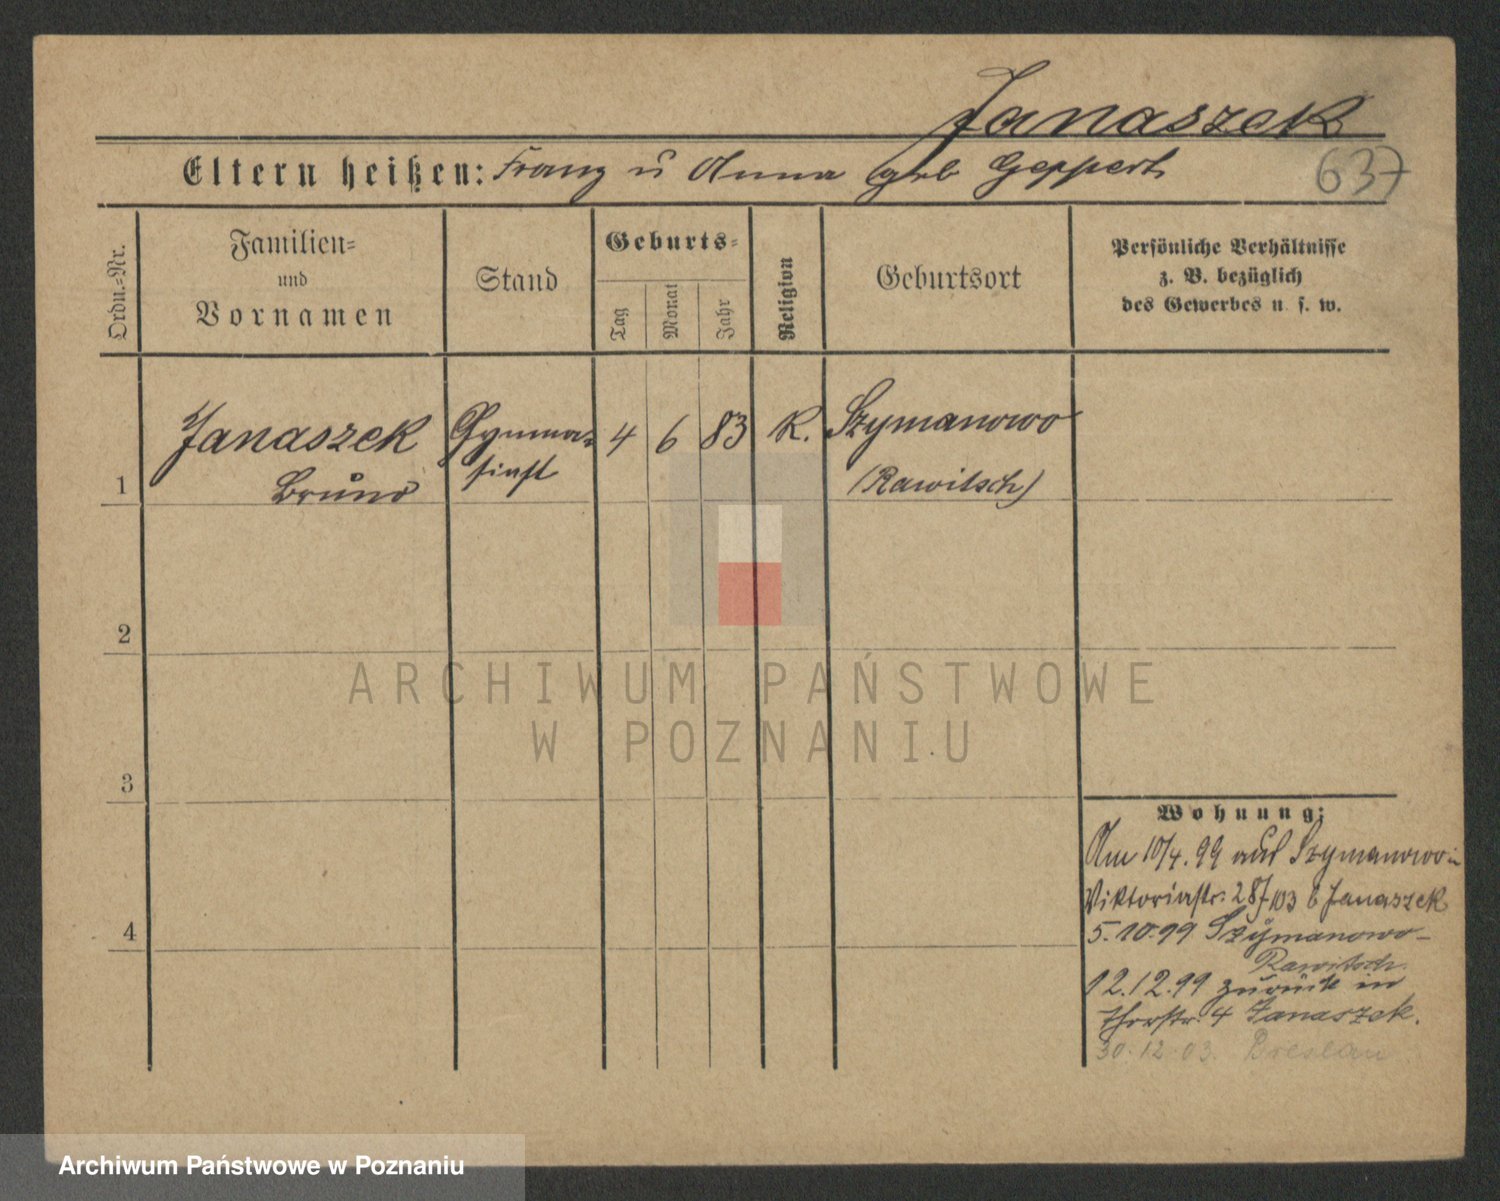 Janaszek
Eltern heißen: Franz u Anna geb Geppert
637
Ordn.=Nr.
Familien=
und
Vornamen
Stand
Geburts=
Tag
Monat
Jahr
Religion
Geburtsort
Persönliche Verhältnisse
z. B. bezüglich
des Gewerbes u. s. w.
1
Janaszek
Bruno
Gymna=
siast
4
6
83
K.
Szymanowo
(Rawitsch)
2
3
4
Wohnung:
Am 10/4. 99 aus Szymanowo in
Viktoriastr. 28/103 b Janaszek
5.10.99 Szymanowo-
Rawitsch.
12.12.99 zurück in
Thorstr. 4 Janaszek.
30.12.03. Breslau
ARCHIWUM PAŃSTWOWE
W POZNANIU
Archiwum Państwowe w Poznaniu